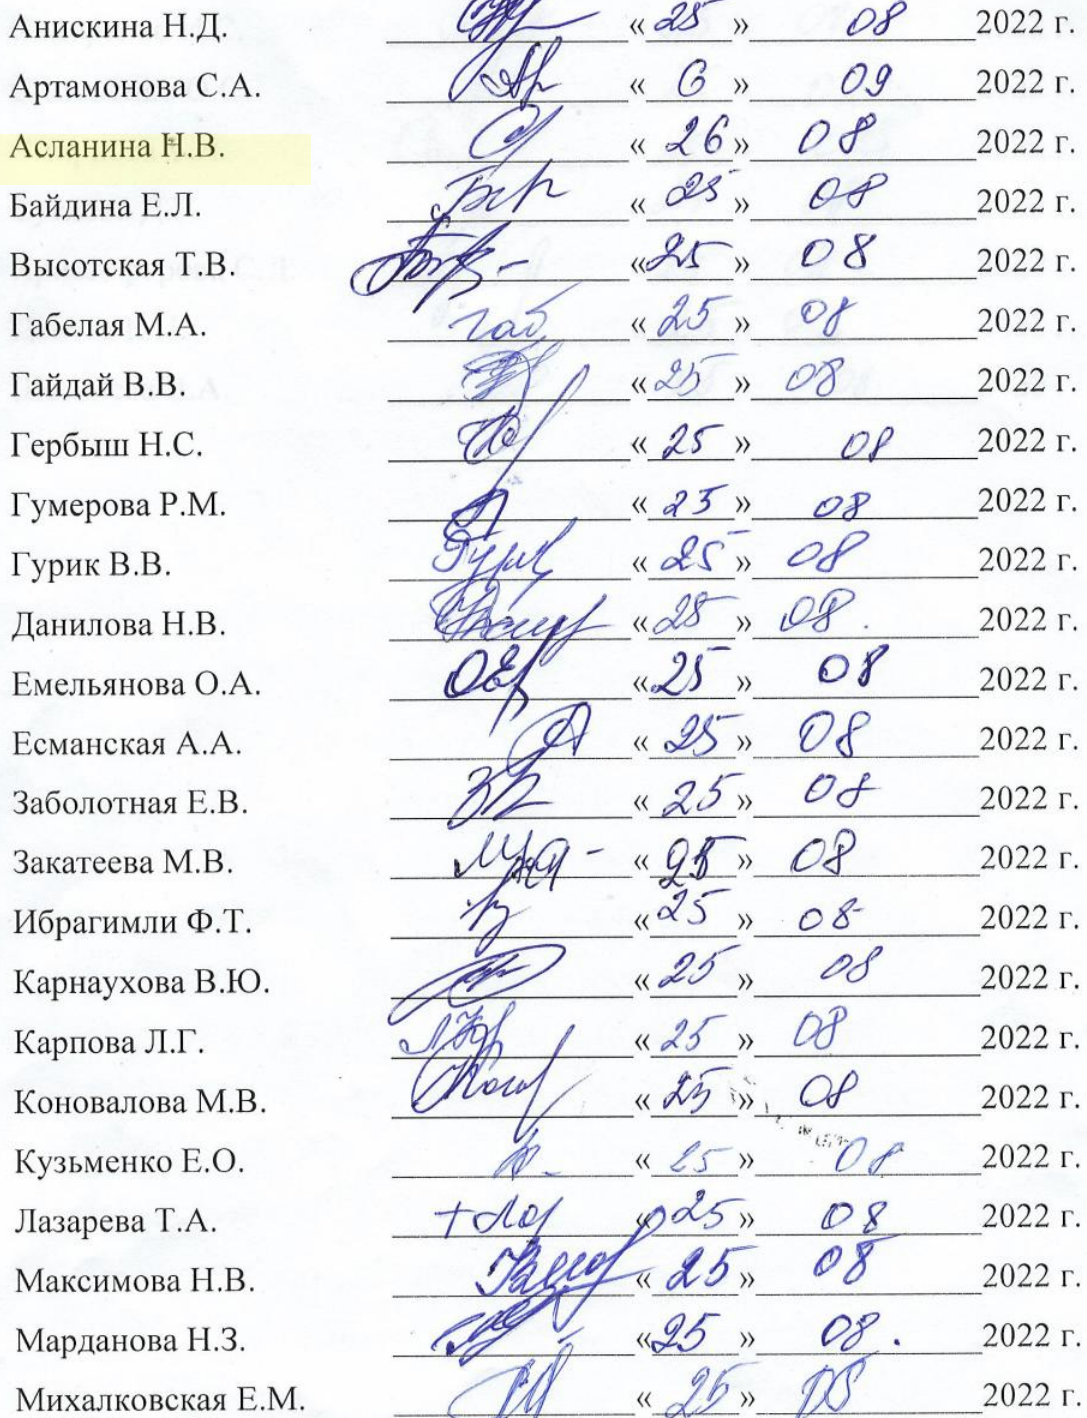 Анискина Н.Д. « 25 » 08 2022 г.
Артамонова С.А. « 6 » 09 2022 г.
Асланина Н.В. « 26 » 08 2022 г.
Байдина Е.Л. « 25 » 08 2022 г.
Высотская Т.В. « 25 » 08 2022 г.
Габелая М.А. Габ « 25 » 08 2022 г.
Гайдай В.В. « 25 » 08 2022 г.
Гербыш Н.С. « 25 » 08 2022 г.
Гумерова Р.М. « 25 » 08 2022 г.
Гурик В.В. « 25 » 08 2022 г.
Данилова Н.В. « 25 » 08. 2022 г.
Емельянова О.А. « 25 » 08 2022 г.
Есманская А.А. « 25 » 08 2022 г.
Заболотная Е.В. « 25 » 08 2022 г.
Закатеева М.В. « 25 » 08 2022 г.
Ибрагимли Ф.Т. « 25 » 08 2022 г.
Карнаухова В.Ю. « 25 » 08 2022 г.
Карпова Л.Г. « 25 » 08 2022 г.
Коновалова М.В. « 25 » 08 2022 г.
Кузьменко Е.О. « 25 » 08 2022 г.
Лазарева Т.А. « 25 » 08 2022 г.
Максимова Н.В. « 25 » 08 2022 г.
Марданова Н.З. « 25 » 08. 2022 г.
Михалковская Е.М. « 25 » 08 2022 г.